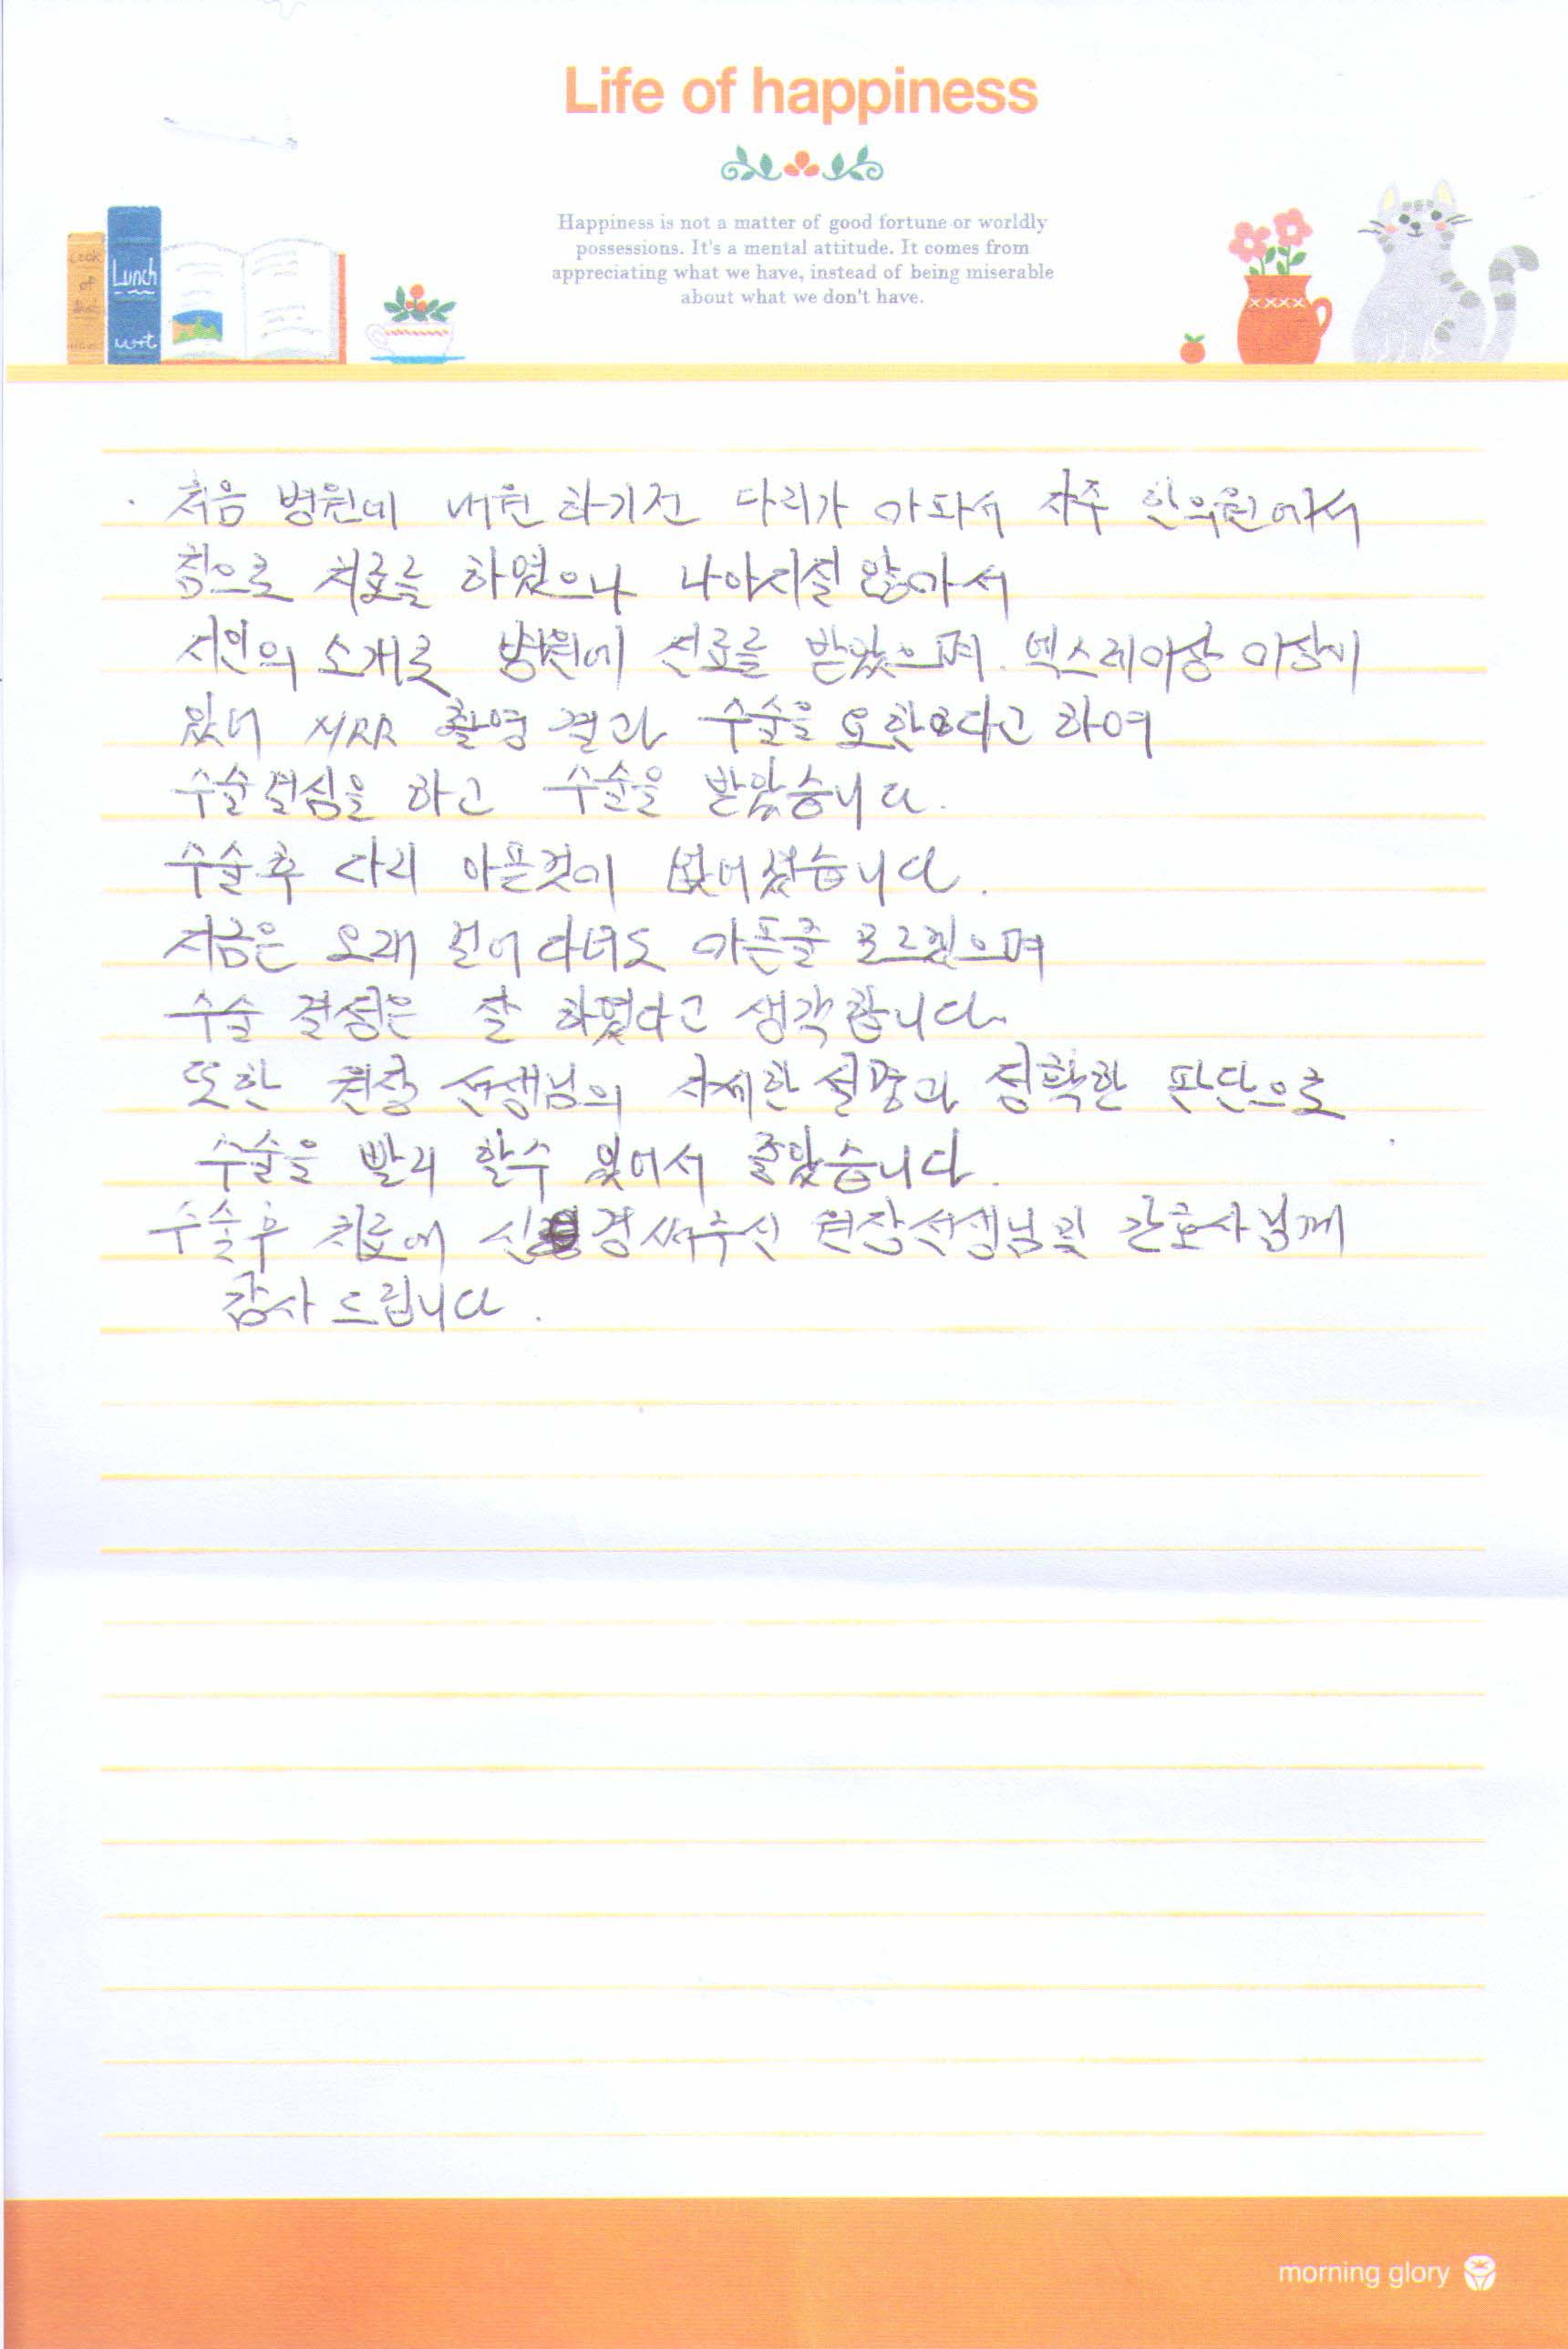 Life of happiness
Happiness is not a matter of good fortune or worldly
possessions. It's a mental attitude. It comes from
appreciating what we have, instead of being miserable
about what we don't have.
Lunch
· 처음 병원에 내원 하기전 다리가 아파서 자주 한의원에서
침으로 치료를 하였으나 나아지질 않아서
지인의 소개로 병원에 진료를 받았으며. 엑스레이상 이상이
있너 촬영 결과 수술을 요한다고 하여
수술결심을 하고 수술을 받았습니다.
수술후 다리 아픈것이 없어졌습니다.
지금은 오래 걸어 다녀도 아픈줄 모르겠으며
수술 결정은 잘 하였다고 생각합니다
또한 원장 선생님의 자세한 설명과 정확한 판단으로
수술을 빨리 할수 있어서 좋았습니다.
수술후 치료에 신경써주신 원장선생님및 간호사님께
감사 드립니다.
morning glory